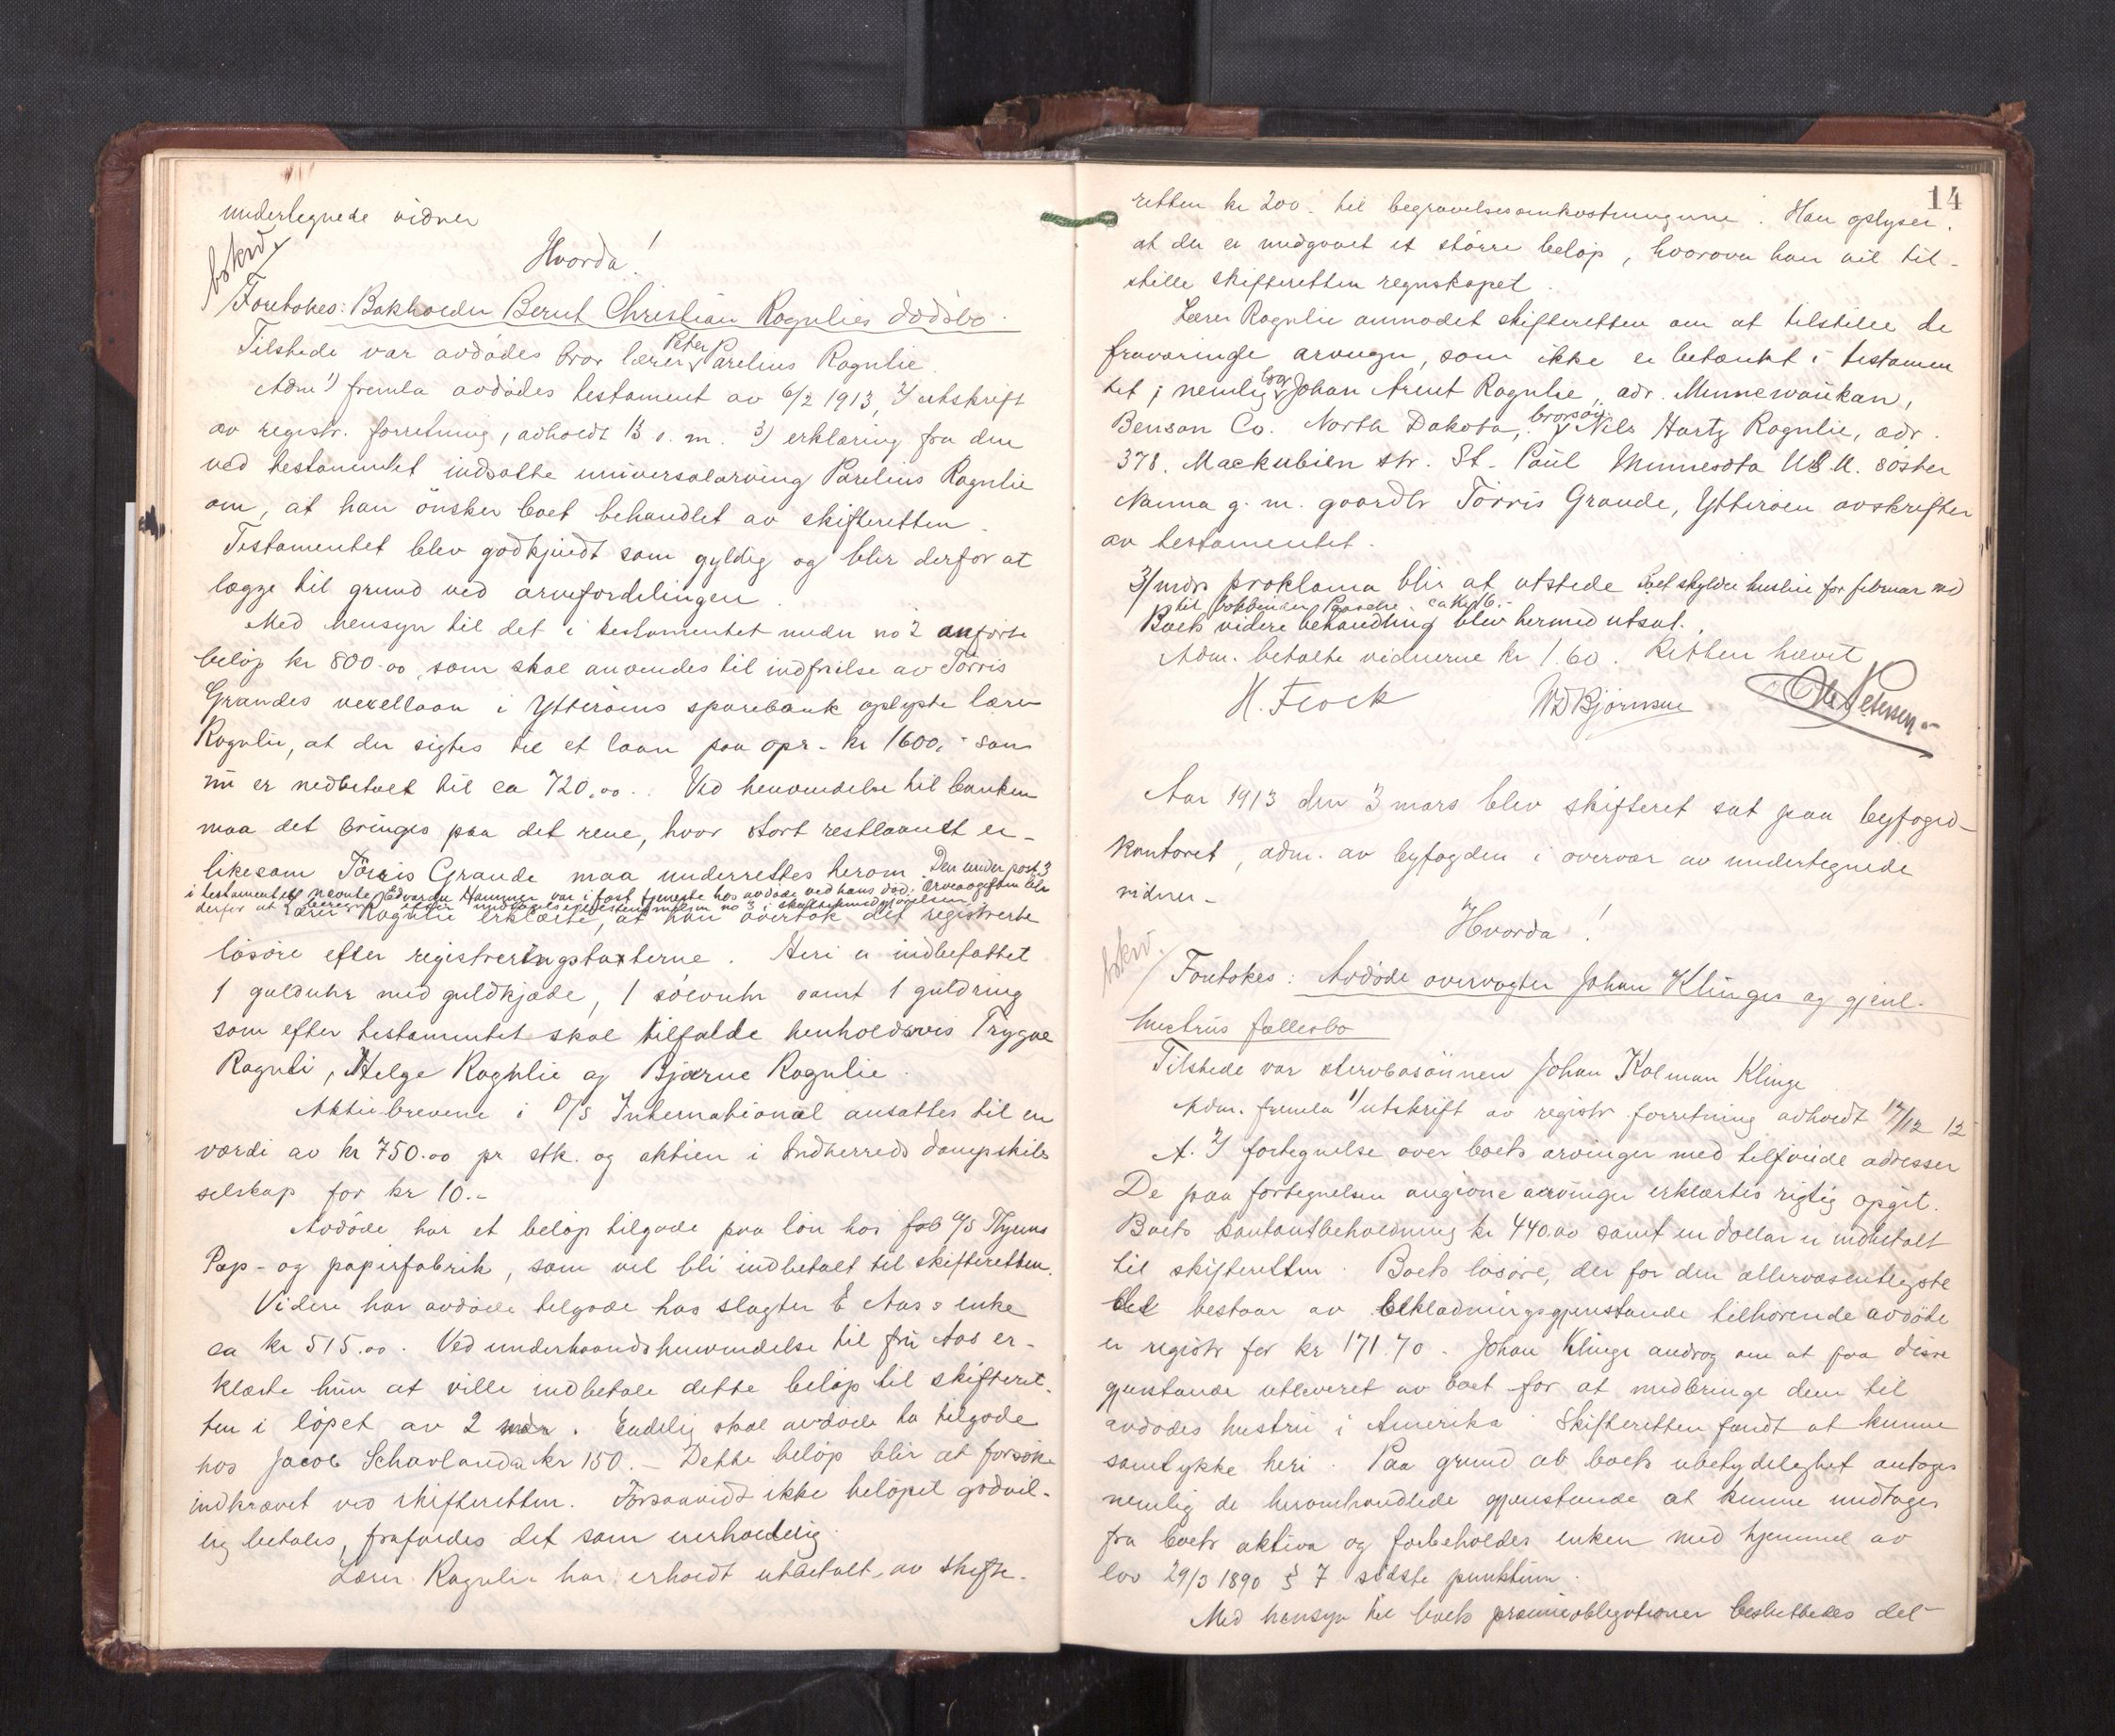 undertegnede vidner
Hvorda!
bskrv.
Foretokes: Bokholder Bernt Christian Rognlies dødsbo.
Tilstede var avdødes bror lærer Peter Parelius Rognlie.
Adm 1) fremla avdødes testament av 6/2 1913, 2) utskrift
av registr. forretning, avholdt 13 s. m. 3) erklæring fra den
ved testamentet indsatte universalarving Parelius Rognlie
om, at han ønsker boet behandlet av skifteretten.
Testamentet blev godkjendt som gyldig og blir derfor at
lægge til grund ved arvefordelingen.
Med hensyn til det i testamentet under no 2 anførte
beløp kr 800.00, som skal anvendes til indfrielse av Tørris
Grandes vexellaan i Ytterøens sparebank oplyste lærer
Rognlie, at der sigtes til et laan paa opr. kr 1600,- som
nu er nedbetalt til ca 720.00. Ved henvendelse til banken
maa det bringes paa det rene, hvor stort restlaanet er-
likesom Tørris Grande maa underrettes herom. Den under post 3
i testamentet nevnte Edvarda Hammer var i fast tjeneste hos avdøde ved hans død. Arveavgiften blir
derfor at beregne efter
Lærer Rognlie erklærte, at han overtok det registrerte
løsøre efter registreringstaxterne. Heri er indbefattet
1 guldur med guldkjæde, 1 sølvuhr samt 1 guldring
som efter testamentet skal tilfalde henholdsvis Trygve
Rognli, Helge Rognlie og Bjarne Rognlie.
Aktiebrevene i D/S International ansattes til en
værdi av kr 750.00 pr stk. og aktien i Indherreds dampskibs
selskap for kr 10.-
Avdøde har et beløp tilgode paa løn hos fab A/S
Pap- og papirfabrik, som vil bli indbetalt til skifteretten.
Videre har avdøde tilgode hos slagter E Aas's enke
ca kr 515.00. Ved underhaandshenvendelse til fru Aas er-
klærte hun at ville indbetale dette beløp til skifteret-
ten i løpet av 2 mdr. Endelig skal avdøde ha tilgode
hos Jacob Schavlanda kr 150.- Dette beløp blir at forsøke
indkrævet ved skifteretten. Forsaavidt ikke beløpet godvil-
lig betales, frafaldes det som uerholdelig.
Lærer Rognlie har erholdt utbetalt av skifte-
14
retten kr 200.- til begravelsesomkostningerne. Han oplyser,
at der er medgaaet et større beløp, hvorover han vil til-
stille skifteretten regnskapet.
Lærer Rognlie anmodet skifteretten om at tilstille de
fraværende arvinger, som ikke er betænkt i testamen
tet, nemlig bror Johan Arent Rognlie, adr. Minnewaukan,
Benson Co. North Dakota, brorsøn Nils Hartz Rognlie, adr.
378. Mackubien str. St. Paul Minnesota U.S.A. søster
Nanna g. m. gaardbr Tørris Grande, Ytterøen avskrifter
av testamentet.
3/mdrs proklama blir at utstede. Boet skylder husleie for februar md
til bokbinder ca kr 16.-
Boets videre behandling blev hermed utsat.
Adm. betalte vidnerne kr 1.60. Retten hævet
H. Flock
Bjørnsen
Ole Petersen
Aar 1913 den 3 mars blev skifteret sat paa byfogd-
kontoret, adm. av byfogden i overvær av undertegnede
vidner-
Hvorda!
bskrv.
Foretokes: Avdøde overvogter Johan Klinges og gjenl.
hustrus fællesbo
Tilstede var stervbosønnen Johan Kolman Klinge
Adm. fremla 1) utskrift av registr forretning avholdt 17/12 12
A. 2) fortegnelse over boets arvinger med tilføiede adresser
De paa fortegnelsen angivne arvinger erklærtes rigtig opgit.
Boets kontantbeholdning kr 440.00 samt en dollar er indbetalt
til skifteretten. Boets løsøre, der for den allervæsentligste
del bestaar av beklædningsgjenstande tilhørende avdøde
er registr for kr 171.70. Johan Klinge androg om at faa disse
gjenstande utleveret av boet for at medbringe dem til
avdødes hustru i Amerika. Skifteretten fandt at kunne
samtykke heri. Paa grund ab boets ubetydelighet antages
nemlig de heromhandlede gjenstande at kunne undtages
fra boets aktiva og forbeholdes enken med hjemmel av
lov 29/3 1890 § 7 sidste punktum.
Med hensyn til boets præmieobligationer besluttedes det